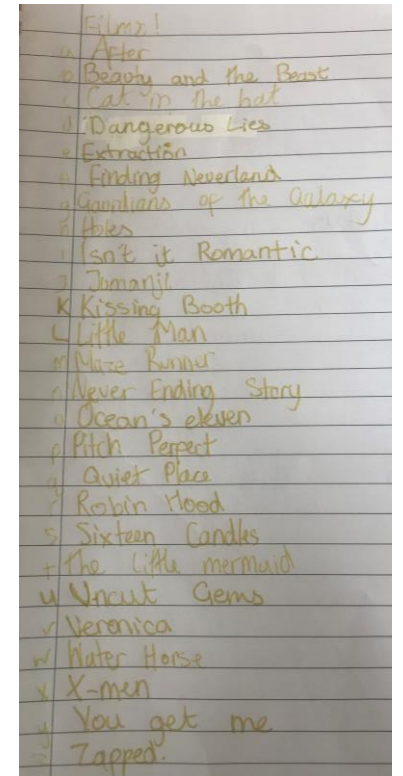 Films!
a After
b Beauty and the Beast
c Cat in the hat
d Dangerous Lies
e Extraction
f Finding Neverland
g Gaurdians of the Galaxy
h Holes
i Isn't it Romantic
J Jumanji
K Kissing Booth
L Little Man
m Maze Runner
n Never Ending Story
o Ocean's eleven
p Pitch Perfect
q Quiet Place
r Robin Hood
s Sixteen Candles
t The little mermaid
u Uncut Gems
v Veronica
w Water Horse
x X-men
y You get me
z Zapped.